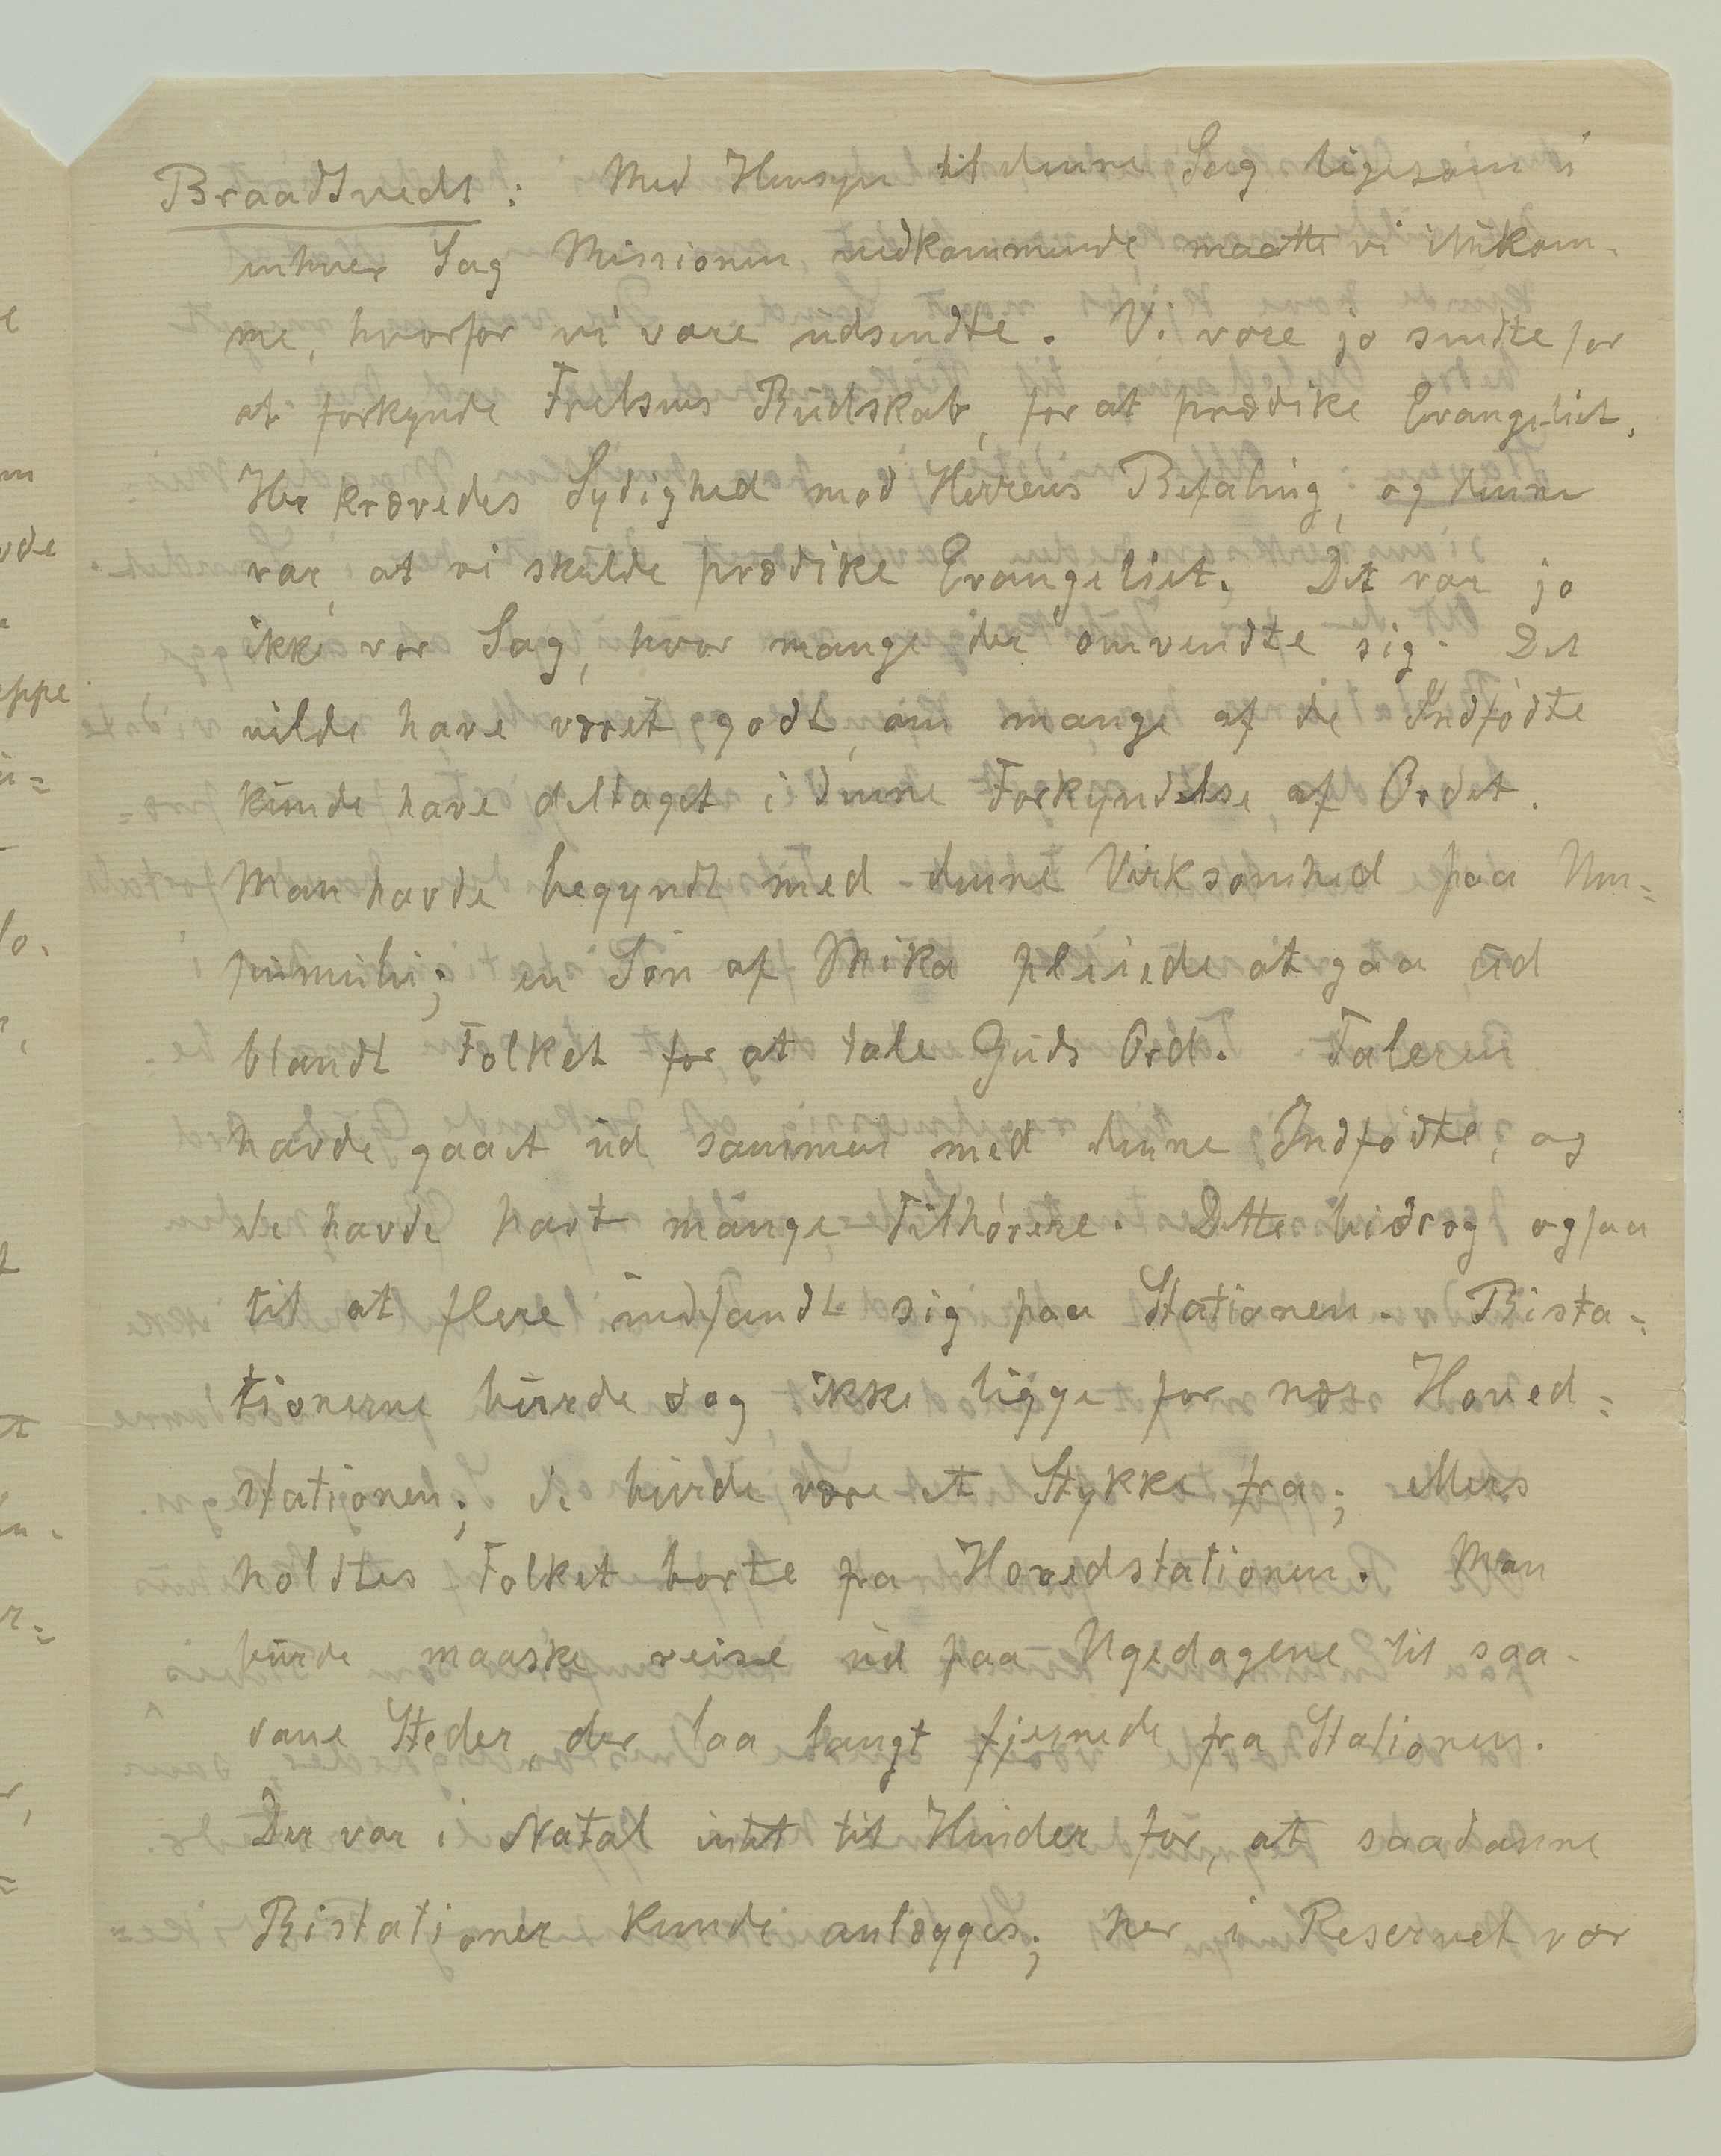 Braadtvedt: Med Hensyn til denne Sag ligesom i
enhver Sag Missionen vedkommende, maatte vi ihukom-
me, hvorfor vi vare udsendte. Vi vare jo sendte for
at forkynde Frelsens Budskab, for at prædike Evangeliet.
Her krævedes Lydighed mod Herrens Befaling, og denne
var, at vi skulde prædike Evangeliet. Det var jo
ikke vor Sag, hvor mange der omvendte sig. Det
vilde have været godt, om mange af de Indfødte
kunde have deltaget i denne Forkyndelse af Ordet.
Man havde begyndt med denne Virksomhed paa Um-
pumulu; en Søn af Mika pleiede at gaa ud
blandt Folket for at tale Guds Ord. Taleren
havde gaaet ud sammen med denne Indfødte, og
de havde havt mange Tilhørere. Dette bidrog ogsaa
til at flere indfandt sig paa Stationen. Bista=
tionerne burde dog ikke ligge for nær Hoved=
stationen; de burde være et Stykke fra; ellers
holdtes Folket borte fra Hovedstationen. Man
burde maaske reise ud paa Ugedagene til saa-
dane Steder, der laa langt fjernede fra Stationen.
Der var i Natal intet til Hinder for, at saadanne
Bistationer kunde anlægges; her i Reservet var